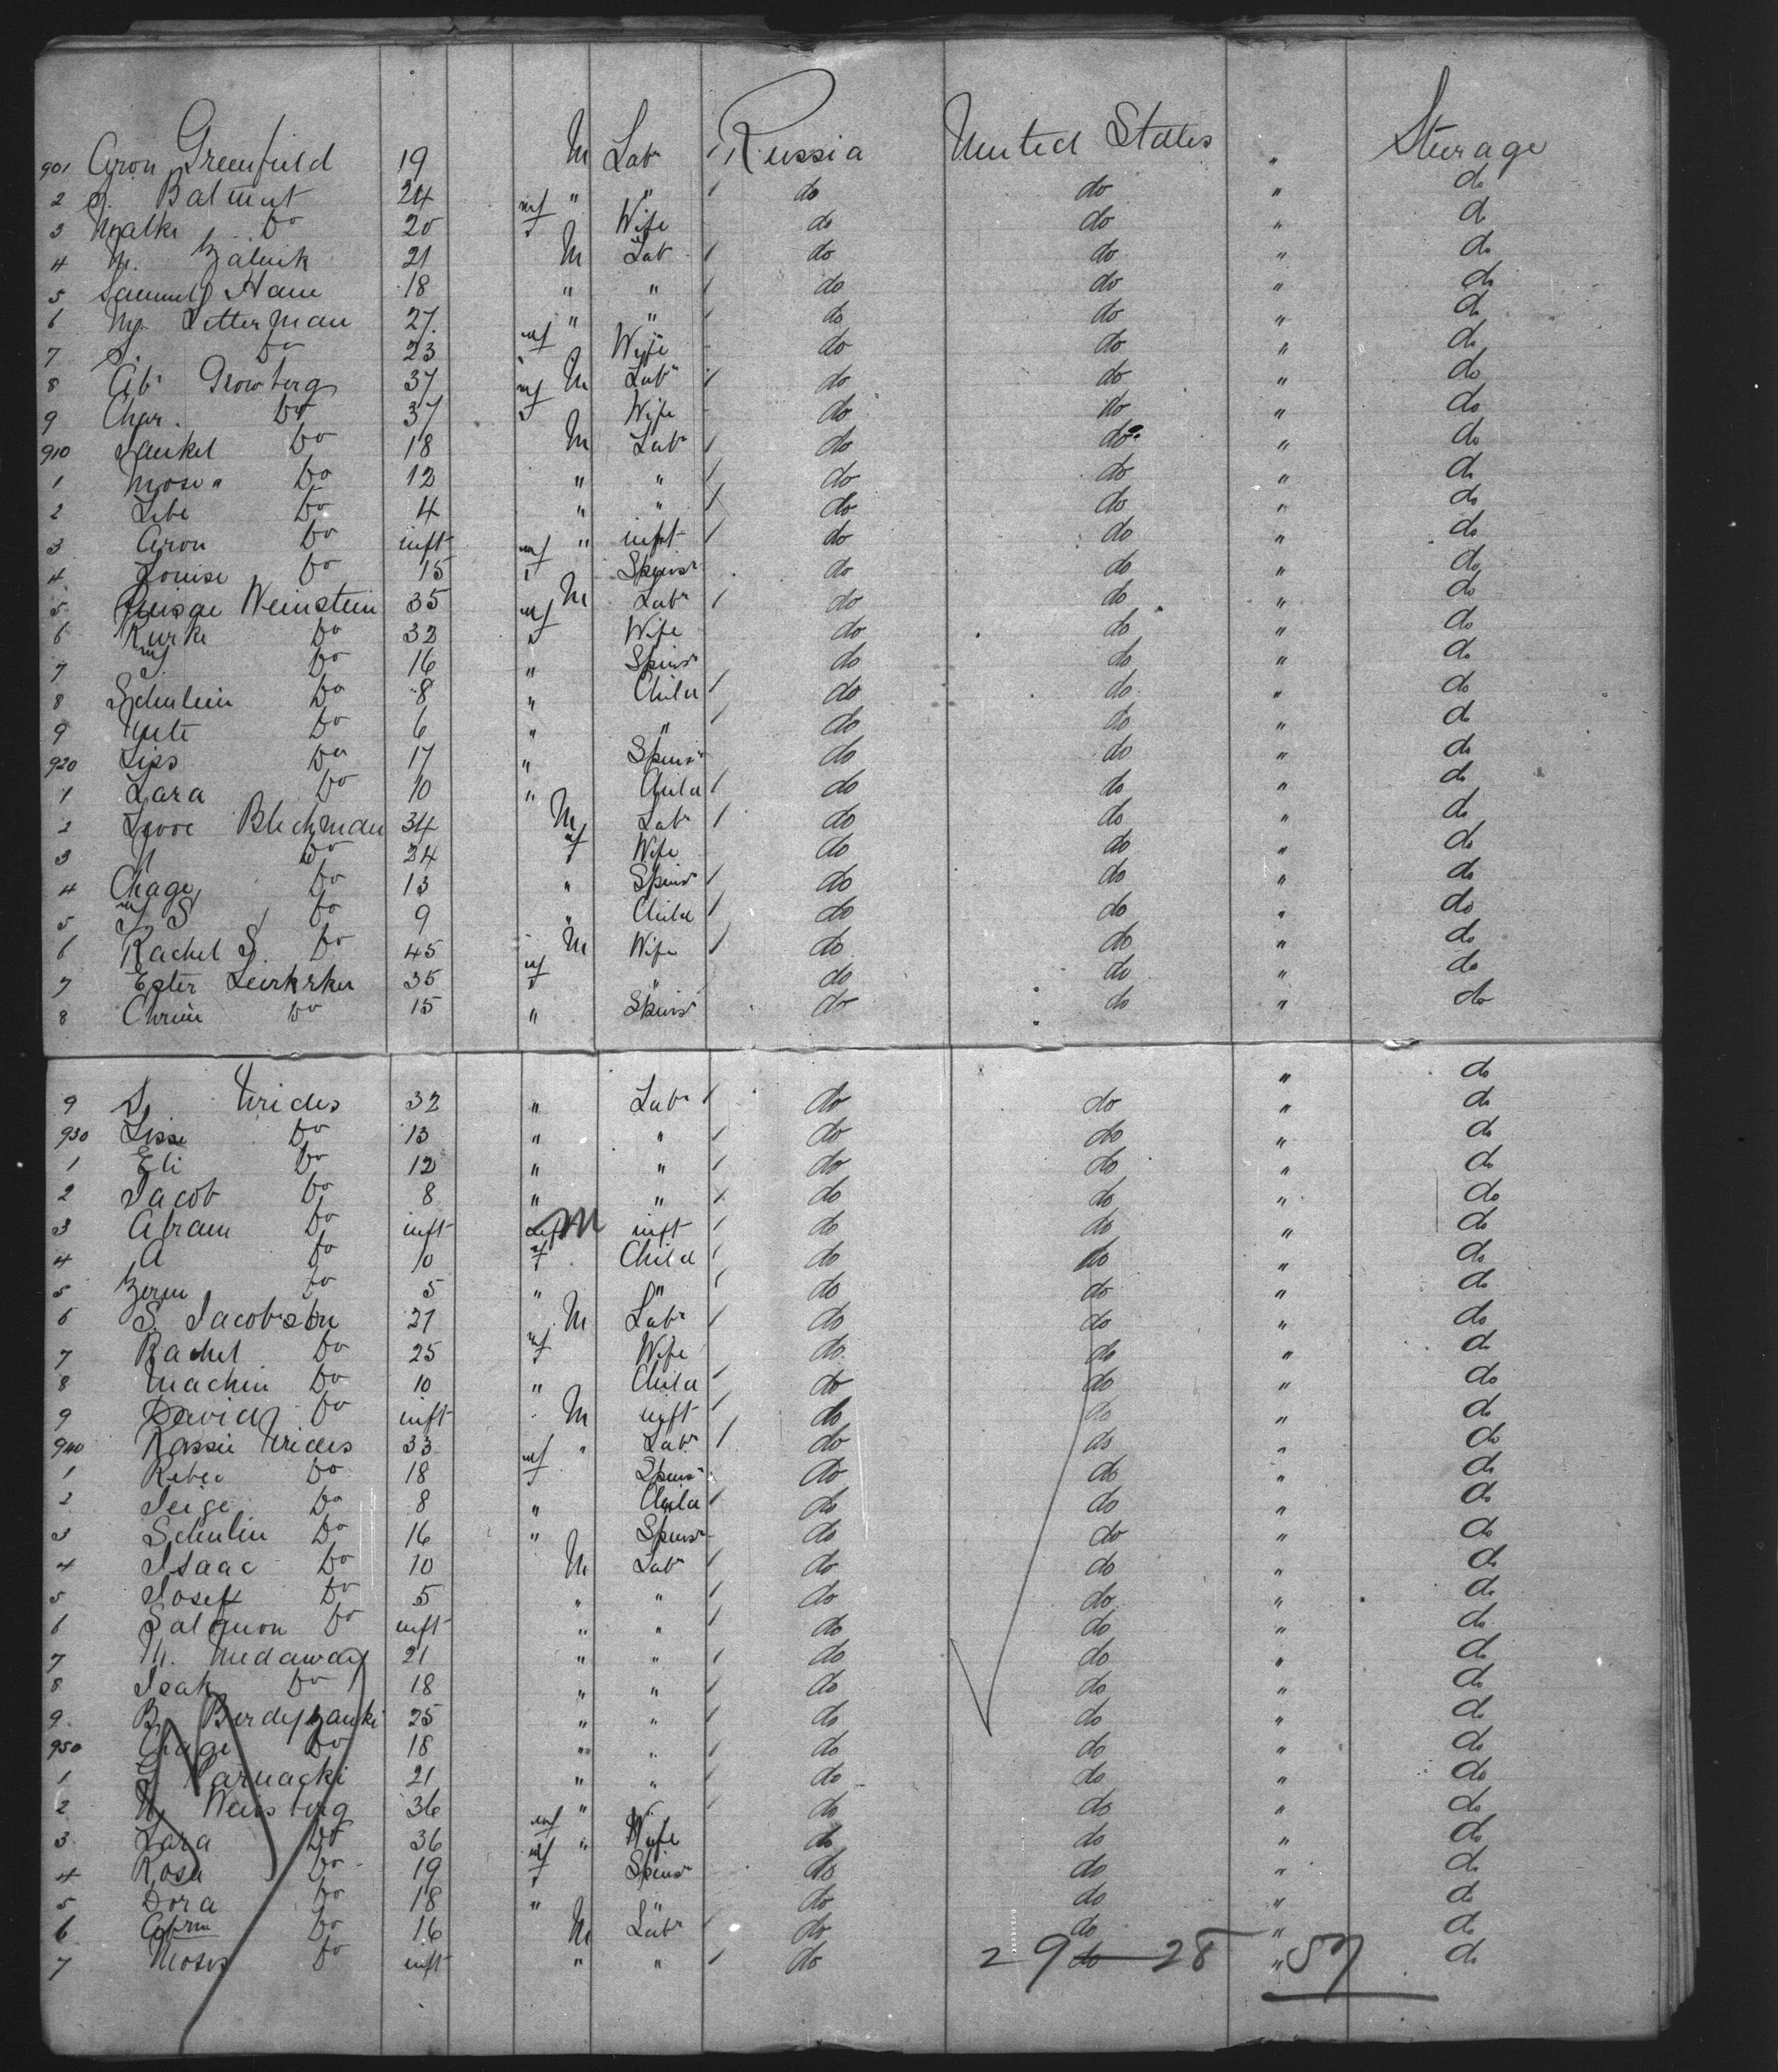 901 Aron Greenfield 19 M Labr / Russia United States " Steerage
2 S. Balmut 24 " " / do do " do
3 Malke Do 20 mf Wife do do " do
4 M. Zalnik 21 M Labr / do do " do
5 Samuel Ham 18 " " / do do " do
6 My. Letterman 27 " " / do do " do
7 S. Do 23 mf Wife do do " do
8 Abr Growberg 37 M Labr / do do " do
9 Char. Do 37 mf Wife do do " do
910 Jankel Do 18 M Labr / do do " do
1 Moses Do 12 " " / do do " do
2 Lebe Do 4 " " / do do " do
3 Aron Do inft " inft / do do " do
4 Louise Do 15 mf Spinsr do do " do
5 Weinstein 35 M Labr / do do " do
6 Kurke Do 32 mf Wife do do " do
7 Do 16 " Spinsr do do " do
8 Schulem Do 8 " Child / do do " do
9 Do 6 " " / do do " do
920 Liss Do 17 " Spinsr do do " do
1 Lara Do 10 " Child / do do " do
2 Blechman 34 M Labr / do do " do
3 Do 24 mf Wife do do " do
4 Chage Do 13 " Spinsr / do do " do
5 S Do 9 " Child / do do " do
6 Rachel S. Do 45 M Wife / do do " do
7 Ester 35 mf " do do " do
8 Do 15 " Spinsr do do " do
" do
9 S. Urides 32 " Labr / do do " do
930 Lisse Do 13 " " / do do " do
1 Eli Do 12 " " / do do " do
2 Jacob Do 8 " " / do do " do
3 Abram Do inft M inft / do do " do
4 A Do 10 mf Child / do do " do
5 Do 5 " " / do do " do
6 S. Jacobson 27 M Labr / do do " do
7 Rachel Do 25 mf Wife do do " do
8 Machin Do 10 " Child / do do " do
9 David Do inft M inft / do do " do
940 Kassie Urides 33 " Labr / do do " do
1 Rebec Do 18 mf Spinsr do do " do
2 Do 8 " Child / do do " do
3 Schulin Do 16 " Spinsr do do " do
4 Isaac Do 10 M Labr / do do " do
5 Josef Do 5 " " / do do " do
6 Salomon Do inft " " / do do " do
7 M. Medaway 21 " " / do do " do
8 Isak Do 18 " " / do do " do
9 B. 25 " " / do do " do
950 Do 18 " " / do do " do
1 21 " " / do do " do
2 Weissberg 36 " " / do do " do
3 Lara Do 36 mf Wife do do " do
4 Rosa Do 19 mf Spinsr do do " do
5 Dora Do 18 " " do do " do
6 Do 16 M Labr / do do " do
7 Moses Do inft " " / do do " do
29 28 57